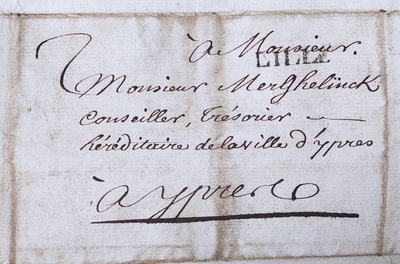 à Monsieur.
LILLE
Monsieur Merghelinck
Conseiller, Trésorier
héréditaire de la ville d'ypres
à ypres